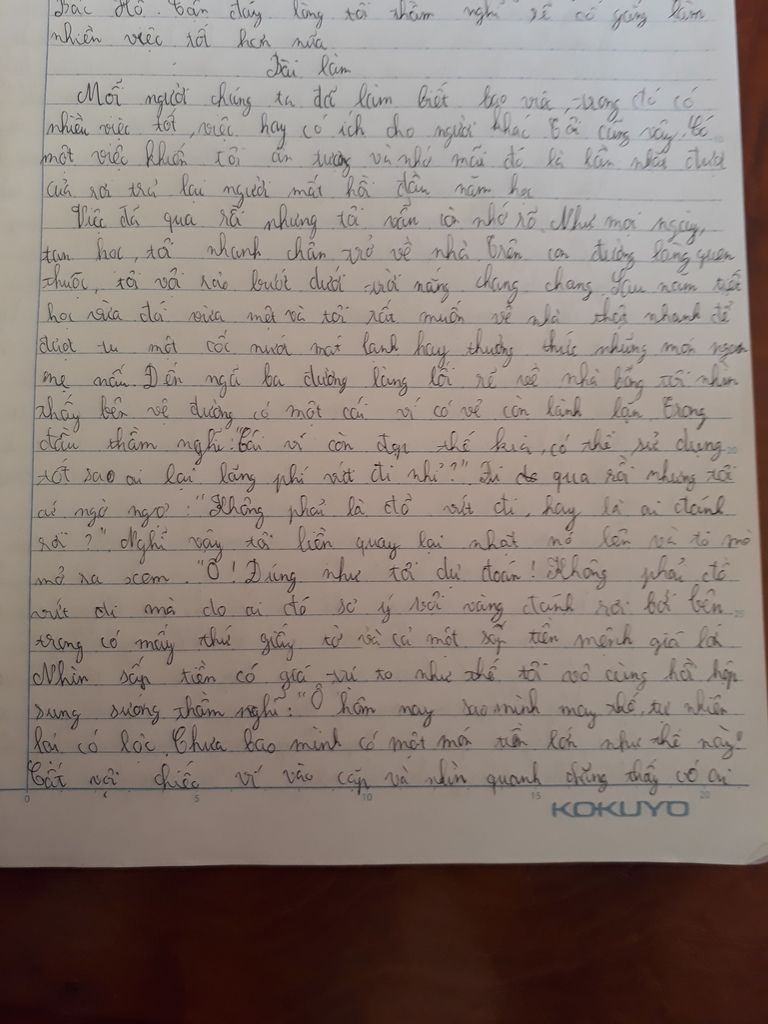 Bác Hồ. Tận đáy lòng tôi thầm nghĩ sẽ cố gắng làm
nhiều việc tốt hơn nữa
Bài làm
Mỗi người chúng ta đã làm biết bao việc, trong đó có
nhiều việc tốt, việc hay có ích cho người khác Tôi cũng vậy. Có
một việc khiến tôi ấn tượng và nhớ mãi đó là lần nhặt được
của rơi trả lại người mất hồi đầu năm học
Việc đã qua rồi nhưng tôi vẫn còn nhớ rõ. Như mọi ngày,
tan học, tôi nhanh chân trở về nhà Trên con đường làng quen
thuộc, tôi vội rảo bước dưới trời nắng chang chang. Sau năm tiết
học vừa đói vừa mệt và tôi rất muốn về nhà thật nhanh để
được tu một cốc nước mát lạnh hay thưởng thức những món ngon
mẹ nấu. Đến ngã ba đường làng lối rẽ về nhà bỗng tôi nhìn
thấy bên vệ đường có một cái ví có vẻ còn lành lặn Trong
đầu thầm nghĩ: "Cái ví còn đẹp thế kia, có thể sử dụng
tốt sao ai lại lãng phí vứt đi nhỉ?" Đi qua rồi nhưng tôi
cứ ngờ ngợ: "Không phải là đồ vứt đi, hay là ai đánh
rơi?" Nghĩ vậy tôi liền quay lại nhặt nó lên và tò mò
mở ra xem. "Ồ! Đúng như tôi dự đoán! Không phải đồ
vứt đi mà do ai đó sơ ý vội vàng đánh rơi bởi bên
trong có mấy thứ giấy tờ và cả một sấp tiền mệnh giá lớn
Nhìn sấp tiền có giá trị to như thế, tôi vô cùng hồi hộp
sung sướng thầm nghĩ: "Ồ hôm nay sao mình may thế, tự nhiên
lại có lộc. Chưa bao mình có một món tiền lớn như thế này!"
Cất vội chiếc ví vào cặp và nhìn quanh chẳng thấy có ai
0 5 10 15 20
KOKUYO